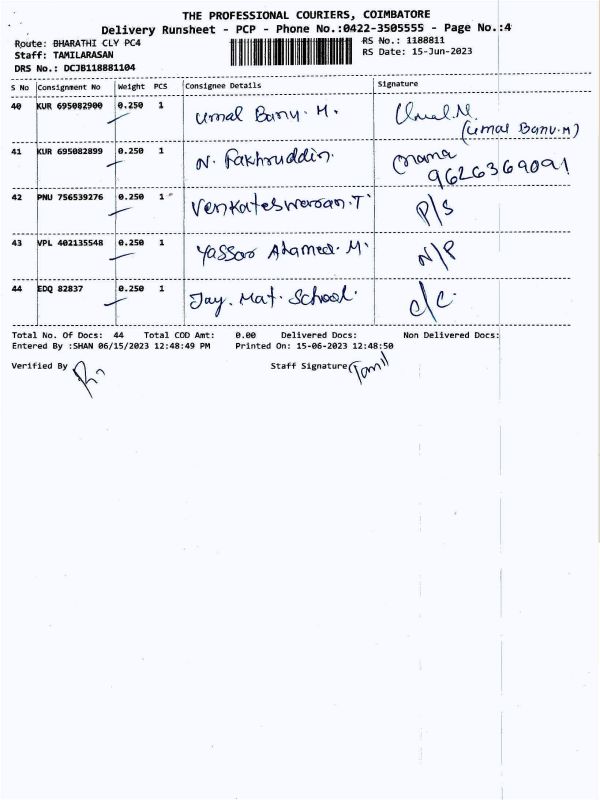 THE PROFESSIONAL COURIERS, COIMBATORE
Delivery Runsheet - PCP - Phone No.:0422-3505555 - Page No.:4
Route: BHARATHI CLY PC4 RS No.: 1188811
Staff: TAMILARASAN RS Date: 15-Jun-2023
DRS No.: DCJB118881104
S No Consignment No Weight PCS Consignee Details Signature
40 KUR 695082900 0.250 1 Umal Banu. M. Umal.M.
(Umal Banu.M)
41 KUR 695082899 0.250 1 N. Fakhruddin.
9626369091
42 PNU 756539276 0.250 1 Venkateswaran.T P/S
43 VPL 402135548 0.250 1 Yassar Ahamed. M. N/P
44 EDQ 82837 0.250 1 Jay. Mat. School. C/C.
Total No. Of Docs: 44 Total COD Amt: 0.00 Delivered Docs: Non Delivered Docs:
Entered By :SHAN 06/15/2023 12:48:49 PM Printed On: 15-06-2023 12:48:50
Verified By Staff Signature Tamil